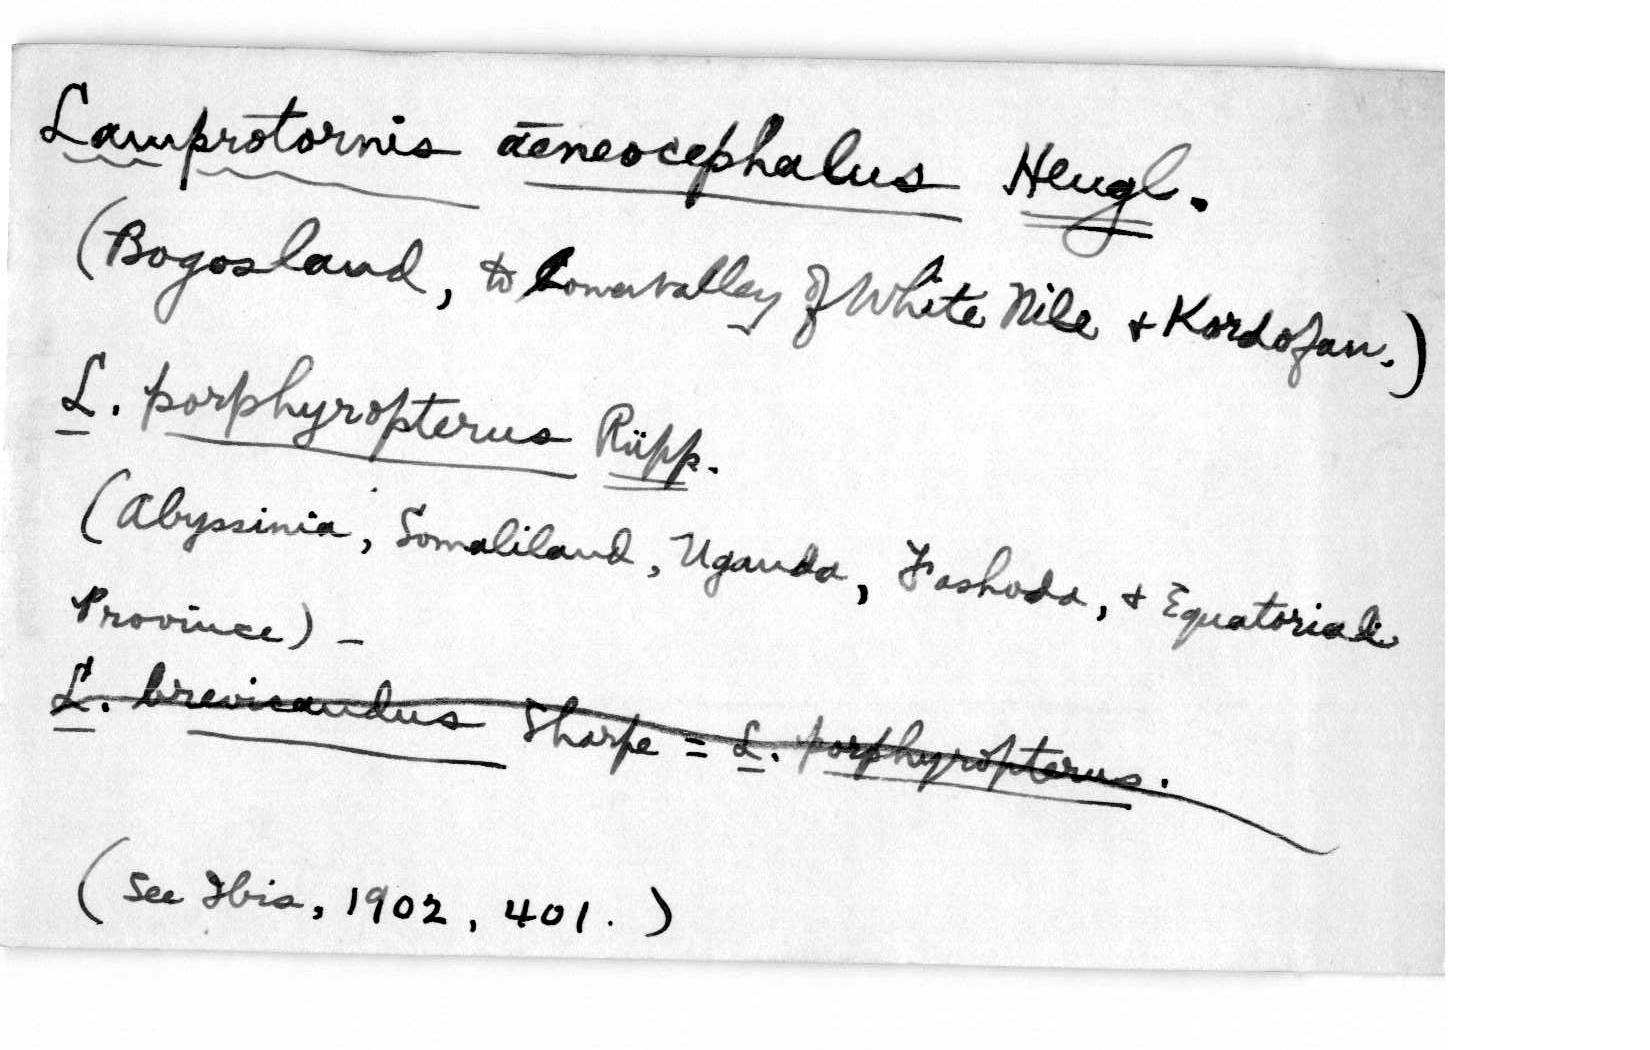 Lamprotornis æneocephalus Heugl.
(Bogosland, to Lower valley of White Nile + Kordofan.)
L. porphyropterus Rüpp.
(Abyssinia, Somaliland, Uganda, Fashoda, + Equatorial
Province) -
L. brevicaudus Sharpe = L. porphyropterus.
(See Ibis, 1902, 401.)